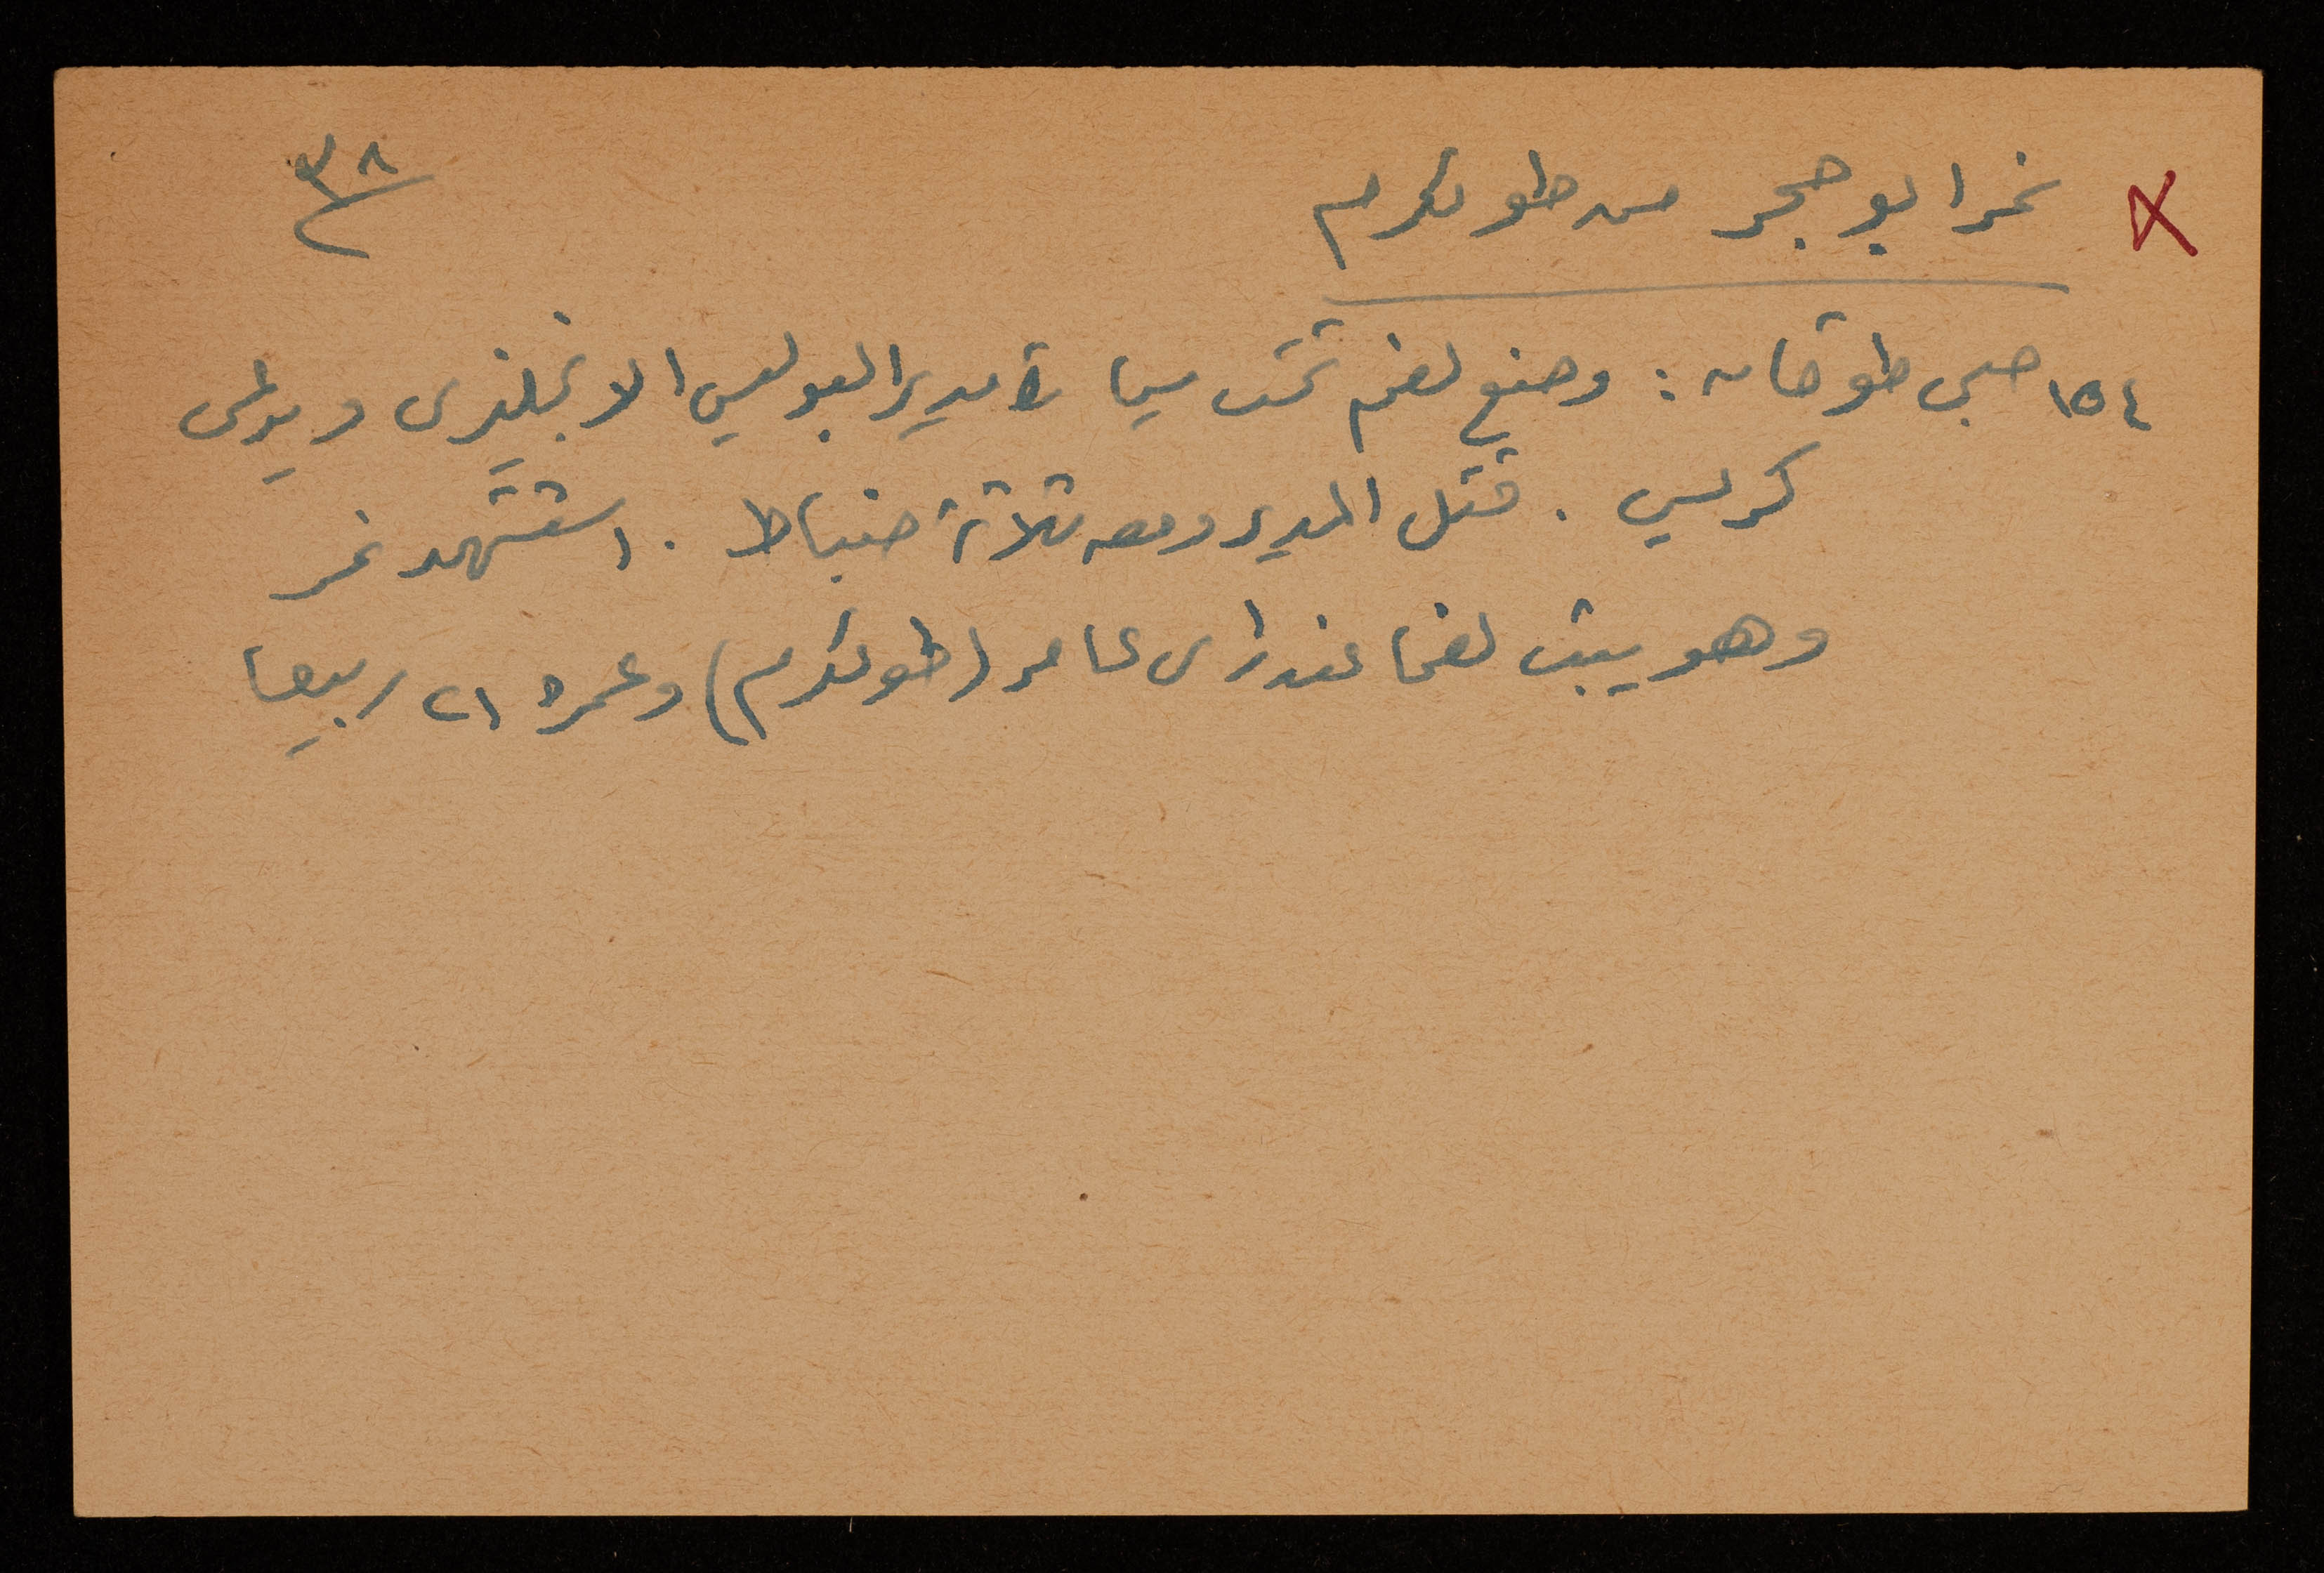 X نمر ابو حجر من طولكرم ٣٨
١٥٤ صبحي طوقان : وضع لغم تحت سيارة مدير البوليس الانجليزى ويدعى
كريس . قتل المدير ومعه ثلاثة ضباط . استشهد نمر
وهو يبث لغما عند زاى عامر (طولكرم) وعمره ٢١ ربيعا